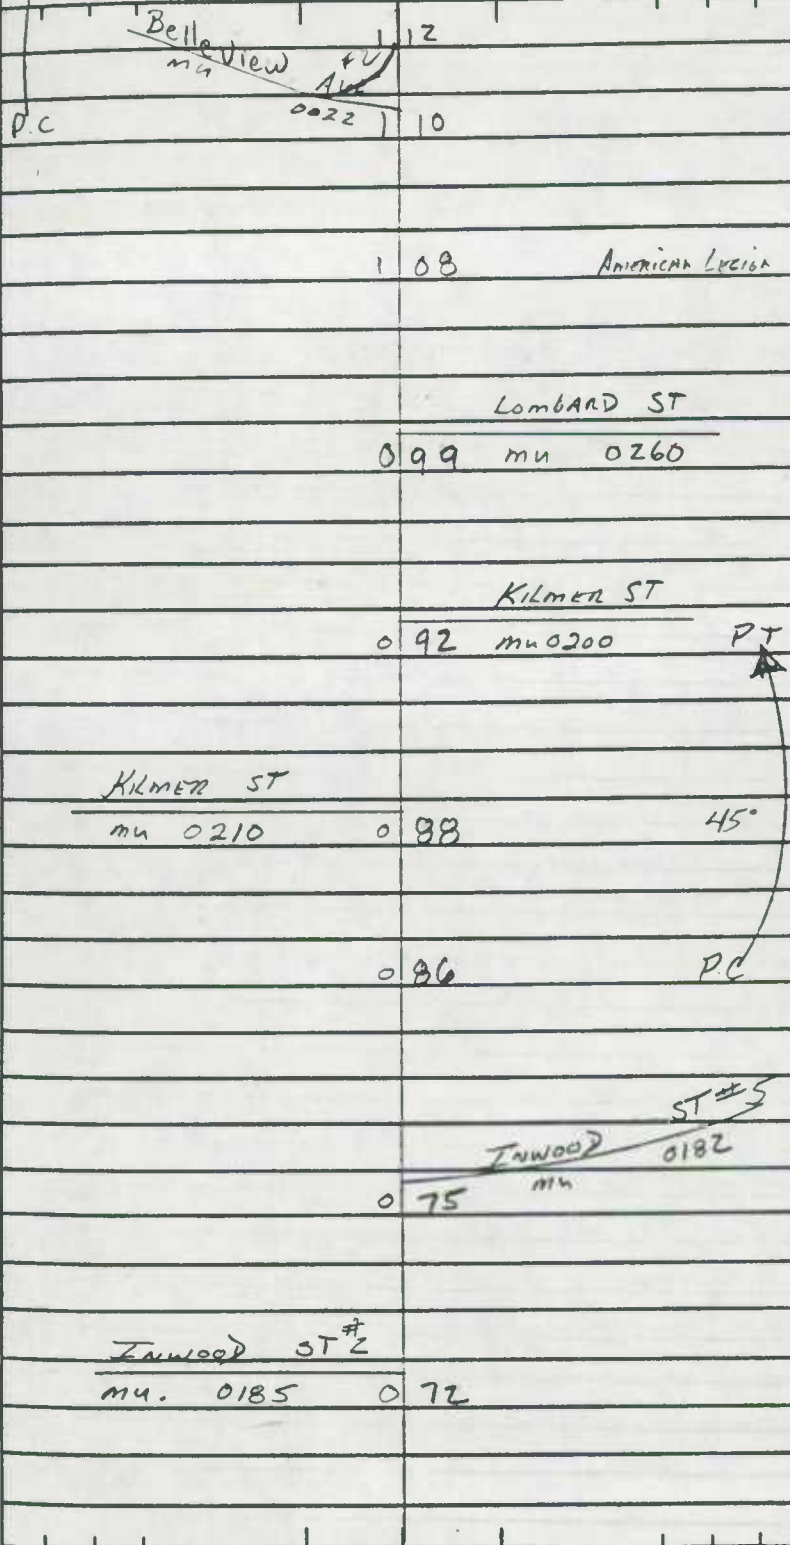 Belle View 1 12
mu Ave
0022
P.C 1 10
1 08 American Legion
Lombard ST
0 99 mu 0260
Kilmer ST
0 92 mu 0200 PT
Kilmer ST
mu 0210 0 88 45°
0 86 P.C
ST #5
Inwood 0182
mu
0 75
Inwood ST #2
mu. 0185 0 72